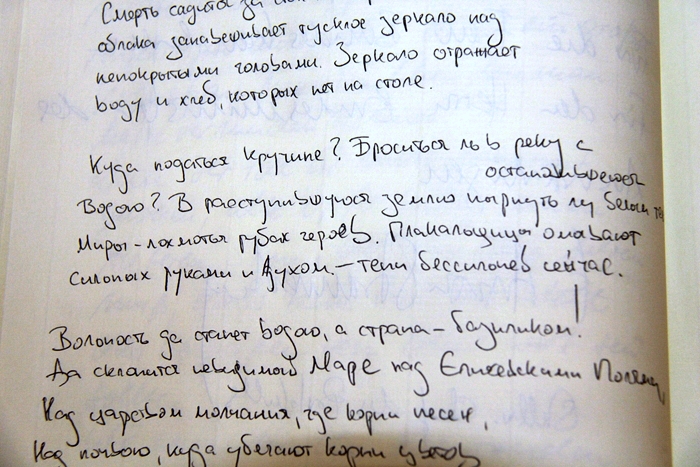 Смерть садится за
облака занавешивает тусклое зеркало над
непокрытыми головами. Зеркало отражает
воду и хлеб, которых нет на столе.
Куда податься кручине? Броситься ль в реку с
остановившейся
Водою? В расступившуюся землю нырнуть ли
Миры-лохмотья рубах героев. Плакальщицы омывают
сильных руками и духом.-тени бессильнев сейчас.
Вольность да станет водою, а страна-базиликом!
Да склонится невидимой Маре над Елисейскими Полями,
Над царством молчания, где корни песен,
Над почвою, куда убегают корни цветов